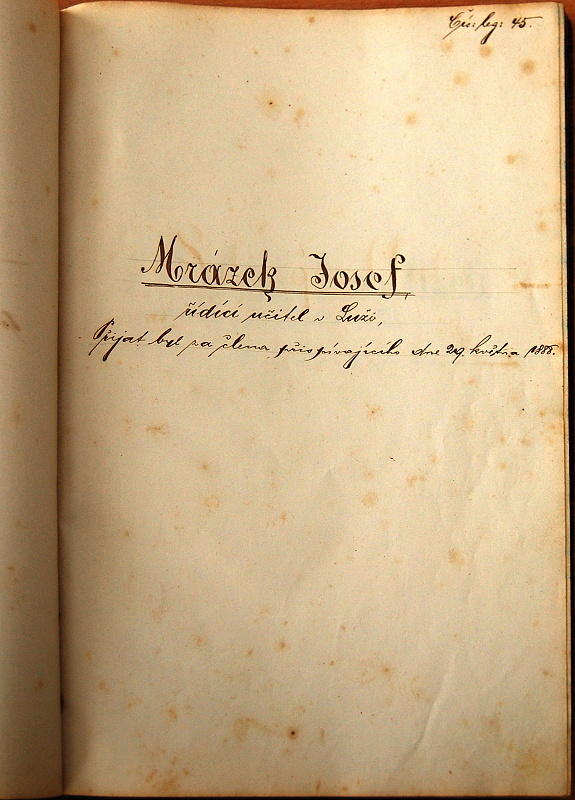 Čís. leg: 45.
Mrázek Josef,
řídící učitel v Luži,
Přijat byl za člena přispívajícího dne 29. května 1888.